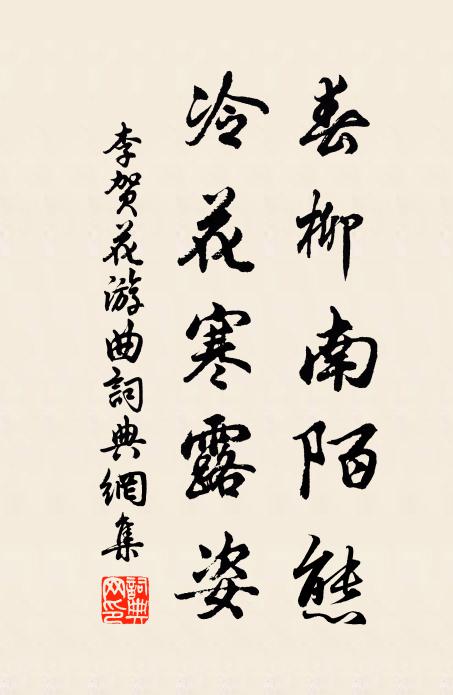 春柳南陌態
冷花寒露姿
李贺花游曲詞典網集
詞典网印